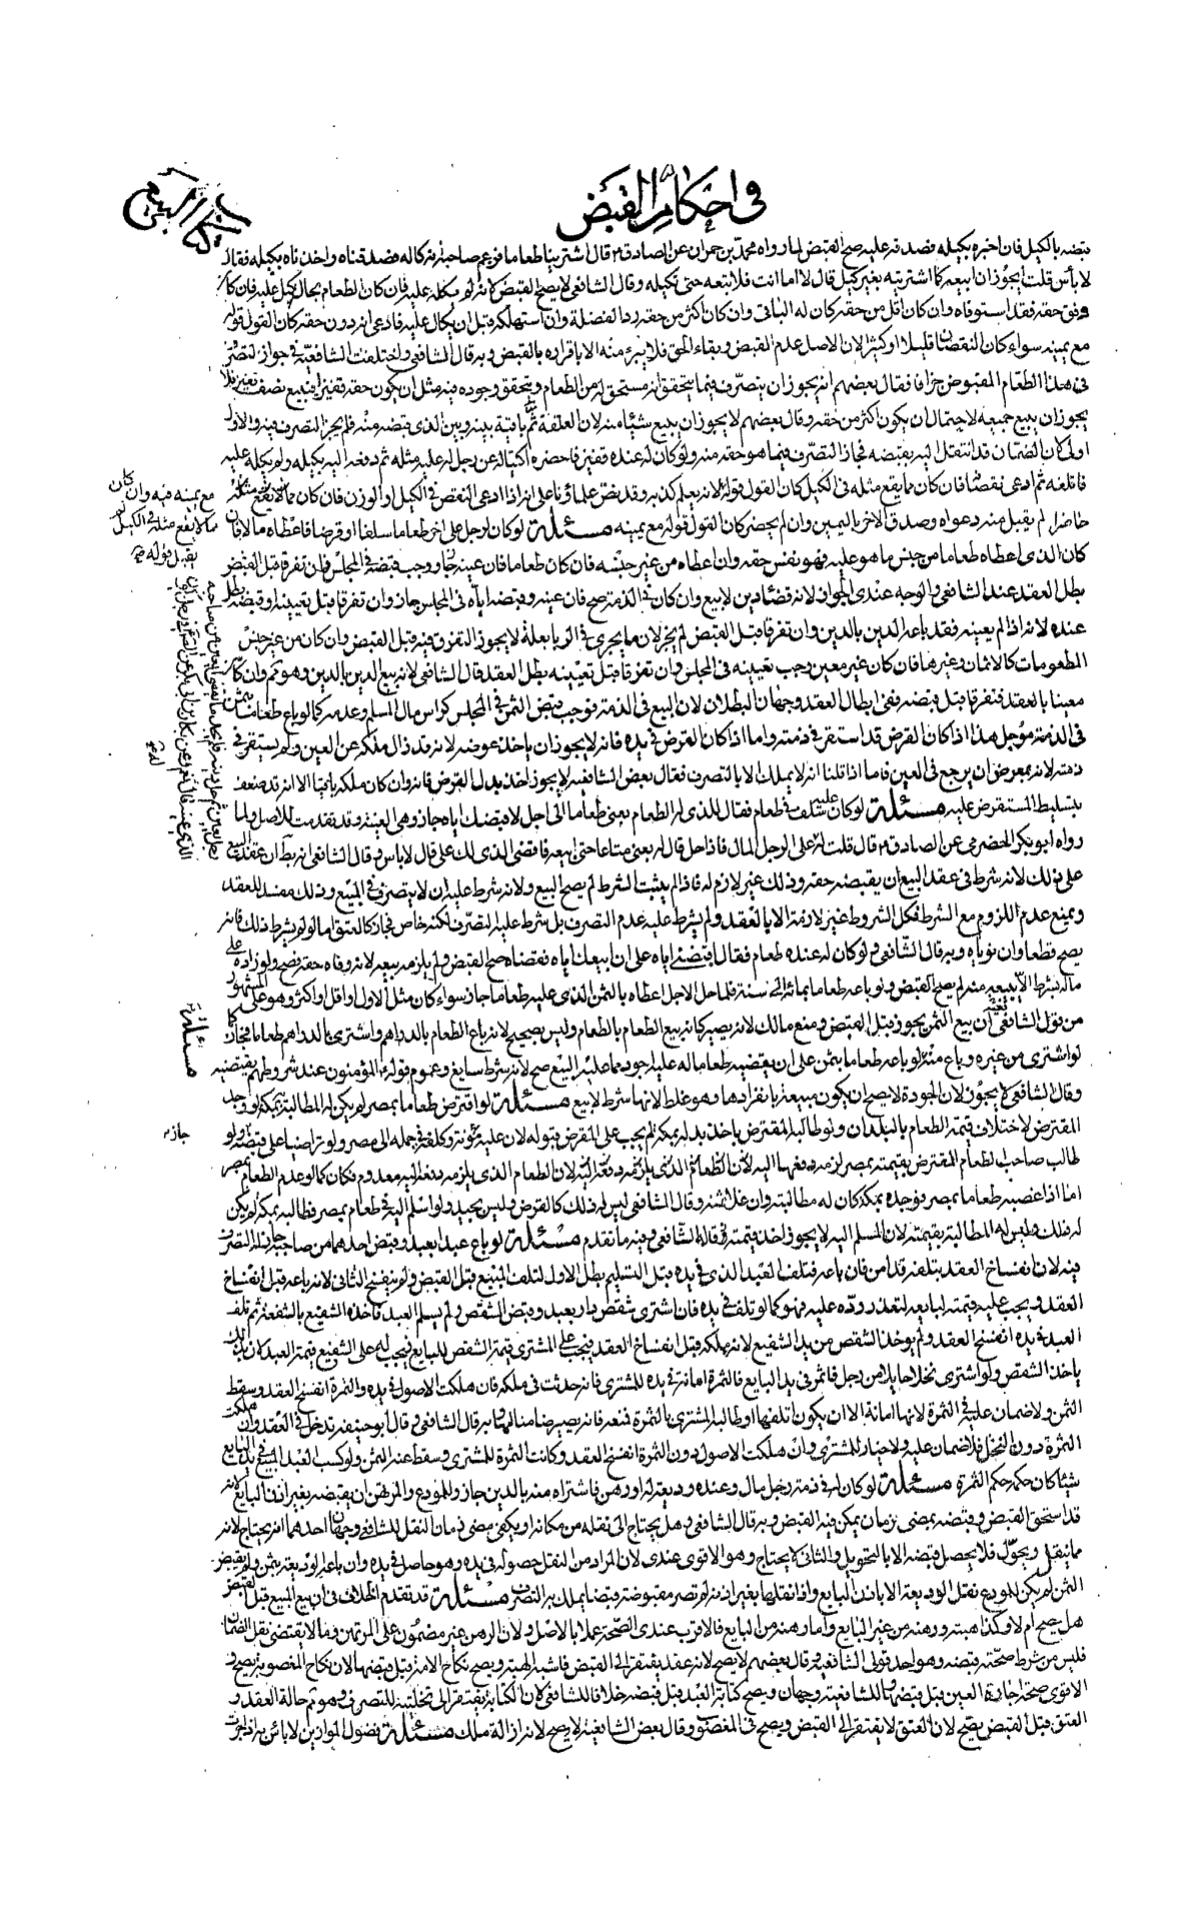 في احكام القبض
كتاب البيع
قبضه بالكيل فان اخبره بكيله فصدقه عليه صح القبض لما رواه محمد بن حمران عن الصادق ع قال اشترينا طعاما فزعم صاحبه انه كاله فصدقناه واخذناه بكيله فقال
لا بأس قلت ايجوز ان ابيعه كما اشتريته بغير كيل قال لا اما انت فلا تبعه حتى تكيله وقال الشافعي لا يصح القبض لانه لم يكله عليه فان كان الطعام بحاله كيل عليه فان كان
وفق حقه فقد استوفاه وان كان اقل من حقه كان له الباقي وان كان اكثر من حقه رد الفضلة وان استهلكه قبل ان يكال عليه فادعى انه دون حقه كان القول قوله
مع يمينه سواء كان النقصان قليلا او كثيرا لان الاصل عدم القبض وبقاء الحق فلا يبرء منه الا باقراره بالقبض وبه قال الشافعي واختلفت الشافعية في جواز التصرف
في هذا الطعام المقبوض جزافا فقال بعضهم انه يجوز ان يتصرف فيما يتحقق انه مستحق له من الطعام ويتحقق وجوده فيه مثل ان يكون حقه قفيزا فيبيع نصف قفيز فلا
يجوز ان يبيع جميعه لاحتمال ان يكون اكثر من حقه وقال بعضهم لا يجوز ان يبيع شيئا منه لان العلقة باقية بينه وبين الذي قبضه منه فلم يجز التصرف فيه والاول
اولى لان الضمان قد انتقل اليه بقبضه فجاز التصرف فيما هو حقه منه ولو كان له عنده قفيز فاحضره اكتياله عن رجل له عليه مثله ثم دفعه اليه بكيله ولم يكله عليه
فاتلفه ثم ادعى نقصانا فان كان مما يقع مثله في الكيل كان القول قوله لانه لم يعلم كذبه وقد نص علماؤنا على انه اذا ادعى النقص في الكيل او الوزن فان كان
حاضرا لم يقبل منه دعواه وصدق الاخر باليمين وان لم يحضر كان القول قوله مع يمينه مسئلة لو كان لرجل على اخر طعاما سلفا او قرضا فاعطاه مالا فان
كان الذي اعطاه طعاما من جنس ما هو عليه فهو نفس حقه وان اعطاه من غير جنسه فان كان طعاما فان عينه جاز ووجب قبضه في المجلس فان تفرقا قبل القبض
بطل العقد عند الشافعي والوجه عندي الجواز لانه قضاء دين لا بيع وان كان في الذمة صح فان عينه وقبضه اياه في المجلس جاز وان تفرقا قبل تعيينه او قبضه بطل
عنده لانه اذا لم يعينه فقد باعه الدين بالدين وان تفرقا قبل القبض لم يجز لان ما يجري في الربا بعلة لا يجوز التفرق فيه قبل القبض وان كان من غير جنس
المطعومات كالاثمان وغيرها فان كان غير معين وجب تعيينه في المجلس وان تفرقا قبل تعيينه بطل العقد قال الشافعي لانه بيع الدين بالدين وهو وان كان
معينا بالعقد فتفرقا قبل قبضه ففي ابطال العقد وجهان البطلان لان المبيع في الذمة فوجب قبض الثمن في المجلس كراس مال المسلم وعدمه كما لو باع طعاما بثمن
في الذمة مؤجل هذا اذا كان القرض قد استقر في ذمته واما اذا كان القرض في يده فانه لا يجوز ان ياخذ عوضه لانه قد زال ملكه عن العين ولم يستقر في
ذمته لانه بمعرض ان يرجع في العين فاما اذا قلنا انه لا يملك الا بالتصرف فقال بعض الشافعية لا يجوز اخذ بدل القرض فانه وان كان ملكه باقيا الا انه قد ضعف
بتسليط المستقرض عليه مسئلة لو كان عليه سلف في طعام فقال للذي له الطعام بعني طعاما الى اجل لاقبضك اياه جاز وهي العينة وقد تقدمت للاصل ولما
رواه ابو بكر الحضرمي عن الصادق ع قال قلت له على الرجل المال فاذا حل قال له بعني متاعا حتى ابيعه فاقضي الذي لك علي قال لا باس وقال الشافعي ان عقد البيع
على ذلك لانه شرط في عقد البيع ان يقبضه حقه وذلك غير لازم له فاذا لم يثبت الشرط لم يصح البيع ولانه شرط عليه ان لا يتصرف في المبيع وذلك مفسد للعقد
ويمنع عدم اللزوم مع الشرط فكل الشروط غير لازمة الا بالعقد ولم يشرط عليه عدم التصرف بل شرط عليه التصرف لكنه خاص فجاز كالعتق اما لو لم يشرط ذلك فانه
يصح قطعا وان نوياه وبه قال الشافعي ولو كان له عنده طعام فقال اقبضني اياه على ان ابيعك اياه فقضاه صح القبض ولم يلزمه بيعه لانه وفاه حقه فصح ولو زاده على
ماله بشرط ان يبيعه منه لم يصح القبض ولو باعه طعاما بمائة الى سنة فلما حل الاجل اعطاه بالثمن الذي عليه طعاما جاز سواء كان مثل الاول او اقل او اكثر وهو على المشهور
من قول الشافعي ان بيع الثمن يجوز قبل القبض ومنع مالك لانه يصير كانه بيع الطعام بالطعام وليس بصحيح لانه باع الطعام بالدراهم واشترى بالدراهم طعاما فجاز كما
لو اشترى من غيره وباع منه ولو باعه طعاما بثمن على ان يقضيه طعاما له عليه اجود مما عليه البيع صح لانه شرط سايغ وعموم قوله ع المؤمنون عند شروطهم يقتضيه
وقال الشافعي لا يجوز لان الجودة لا يصح ان يكون مبيعة بانفرادها وهو غلط لانها شرط لا بيع مسئلة لو اقترض طعاما بمصر لم يكن له المطالبة به بمكة ولو وجد
المقترض لاختلاف قيمة الطعام بالبلدان ولو طالبه المقترض باخذ بدله بمكة لم يجب على المقرض قبوله لان عليه مؤنة وكلفة في حمله الى مصر ولو تراضيا على قبضه ولو
طالب صاحب الطعام المقترض بقيمته بمصر لزمه دفعها اليه لان الطعام الذي يلزمه دفعه اليه لان الطعام الذي يلزمه دفعه اليه معدوم فكان كما لو عدم الطعام بمصر
اما اذا غصبه طعاما بمصر فوجده بمكة كان له مطالبته وان غلا ثمنه وقال الشافعي ليس له ذلك كالقرض وليس بجيد ولو اسلم اليه في طعام بمصر فطالبه بمكة لم يكن
له ذلك وليس له المطالبة بقيمته لان المسلم اليه لا يجوز اخذ قيمته قاله الشافعي وفيه ما تقدم مسئلة لو باع عبدا بعبد وقبض احدهما من صاحبه جاز له التصرف
فيه لان انفساخ العقد بتلفه قد امن فان باعه فتلف العبد الذي في يده قبل التسليم بطل الاول لتلف المبيع قبل القبض ولم ينفسخ الثاني لانه باعه قبل انفساخ
العقد ويجب عليه قيمته لبايعه لتعذر رده عليه فهو كما لو تلف في يده فان اشترى شقص دار بعبد وقبض الشقص ولم يسلم العبد فاخذه الشفيع بالشفعة ثم تلف
العبد في يده انفسخ العقد ولم يوخذ الشقص من يد الشفيع لانه ملكه قبل انفساخ العقد فيجب على المشتري قيمة الشقص للبايع ويجب له على الشفيع قيمة العبد لانه بذلك
ياخذ الشقص ولو اشترى نخلا حايلا من رجل فاثمر في يد البايع فالثمرة امانة في يده للمشتري فانه حدثت في ملكه فان هلكت الاصول في يده والثمرة انفسخ العقد وسقط
الثمن ولا ضمان عليه في الثمرة لانها امانة الا ان يكون اتلفها او طالبه المشتري بالثمرة فمنعه فانه يصير ضامنا لها وبه قال الشافعي وقال ابو حنيفة تدخل في العقد وان هلكت
الثمرة دون النخل فلا ضمان عليه ولا خيار للمشتري وان هلكت الاصول دون الثمرة انفسخ العقد وكانت الثمرة للمشتري وسقط عنه الثمن ولو كسب العبد المبيع في يد البايع
شيئا كان حكمه حكم الثمرة مسئلة لو كان له في ذمة رجل مال وعنده وديعة له او رهن فاشتراه منه بالدين جاز وللمودع والمرتهن ان يقبضه بغير اذن البايع لانه
قد استحق القبض وقبضه بمضي زمان يمكن فيه القبض وبه قال الشافعي وهل يحتاج الى نقله من مكانه او يكفي مضي زمان النقل للشافعي وجهان احدهما انه يحتاج لانه
مما ينقل ويحول فلا يحصل قبضه الا بالتحويل والثاني لا يحتاج وهو الاقوى عندي لان المراد من النقل حصوله في يده وهو حاصل في يده وان باعه الوديعة بثمن ولم يقبض
الثمن لم يكن للمودع نقل الوديعة الا باذن البايع واذا نقلها بغير اذنه لم تصر مقبوضة قبضا يملك به التصرف مسئلة قد تقدم الخلاف في ان بيع المبيع قبل القبض
هل يصح ام لا وكذا هبته ورهنه من غير البايع واما رهنه من البايع فالاقرب عندي الصحة عملا بالاصل ولان الرهن غير مضمون على المرتهن وما لا يقتضي نقل الضمان
فليس من شرط صحته قبضه وهو احد قولي الشافعية وقال بعضهم لا يصح لانه عقد يفتقر الى القبض فاشبه الهبة ويصح نكاح الامة قبل قبضها لان نكاح المغصوبة يصح و
الاقوى صحة اجارة العين قبل قبضها وللشافعية وجهان ويصح كتابة العبد قبل قبضه خلافا للشافعي لان الكتابة يفتقر الى تخليته للتصرف وهو ثم حالة العقد و
العتق قبل القبض يصح لان العتق لا يفتقر الى القبض ويصح في المغصوب وقال بعض الشافعية لا يصح لانه ازالة ملك مسئلة فضول الموازين لا باس به اذا جرت
مع يمينه فيه وان كان
مما لا يقع مثله في الكيل لم
يقبل قوله
مسئلة
جاز